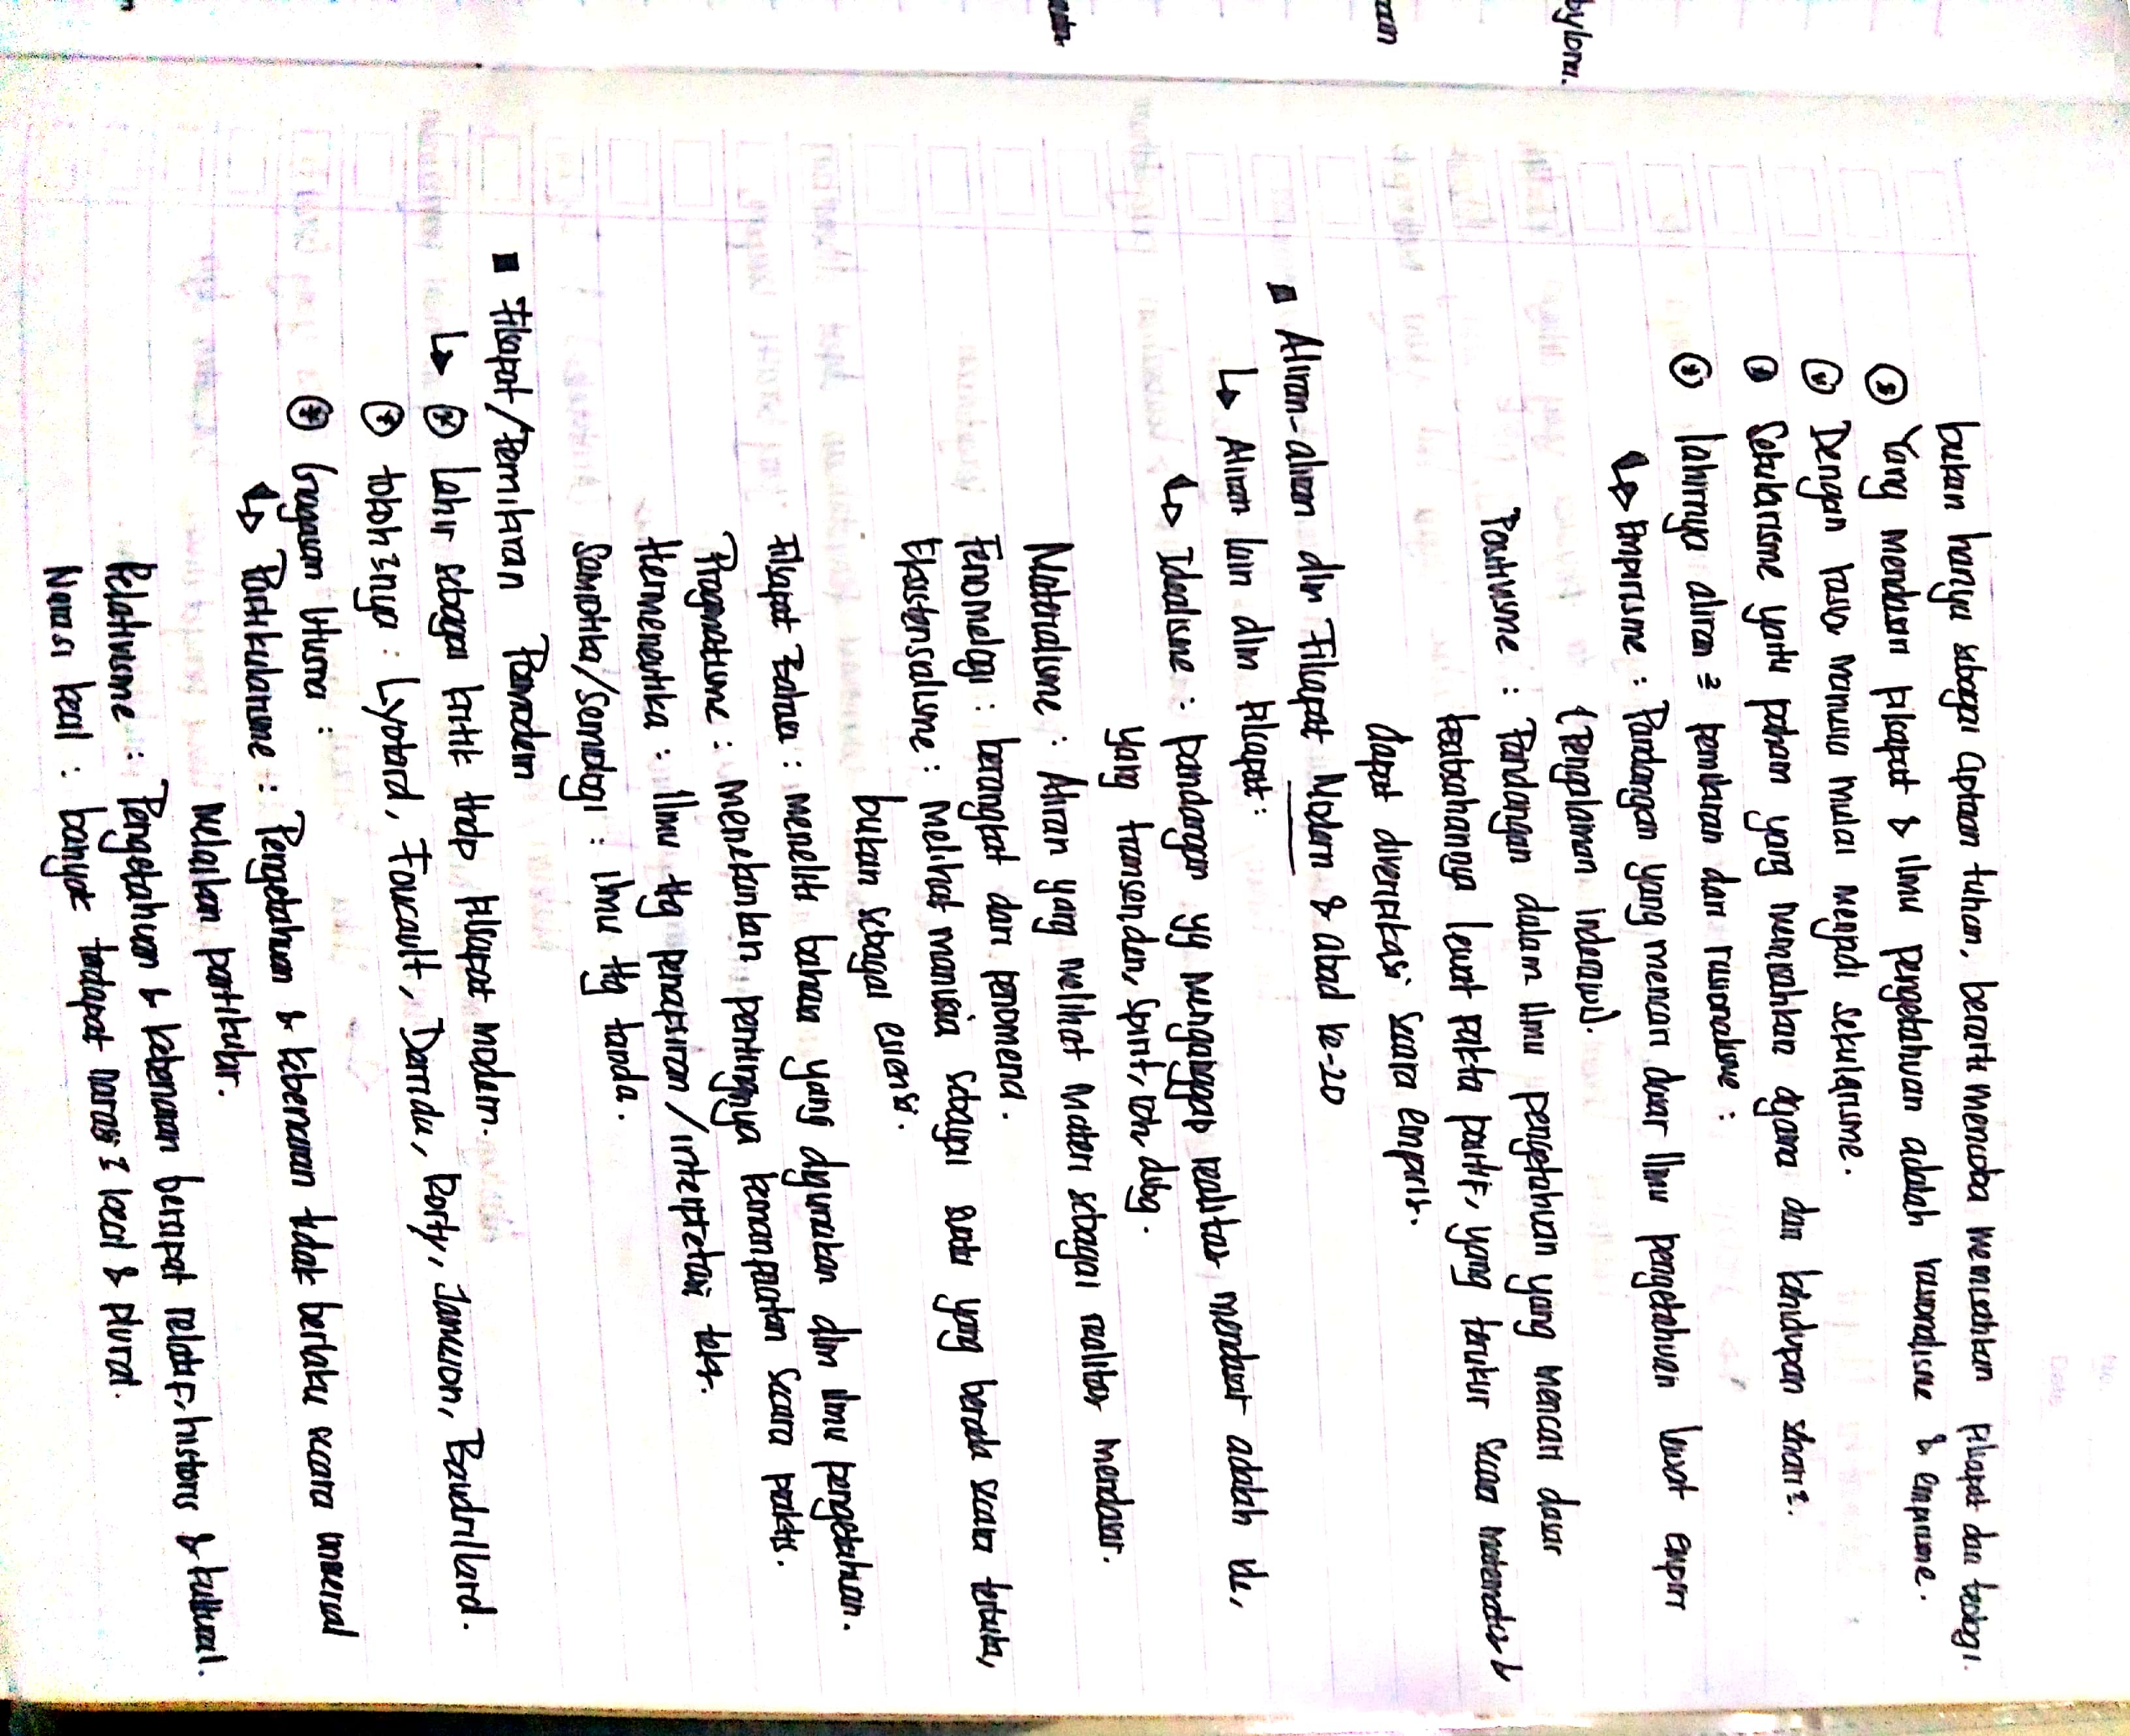 bukan hanya sebagai Ciptaan tuhan, berarti mencoba memisahkan filsapat dan teologi.
Yang mendasari filsapat & ilmu pengetahuan adalah rasionalisme & empirisme.
Dengan rasio manusia mulai menjadi sekularisme.
Sekularisme yaitu paham yang memisahkan agama dan kehidupan sehari².
lahirnya aliran² pemikiran dari rasionalisme :
↳ Empirisme : Pandangan yang mencari dasar ilmu pengetahuan lewat empiri
(pengalaman inderawi).
Positivisme : Pandangan dalam ilmu pengetahuan yang mencari dasar
keabsahannya lewat fakta positif, yang terukur secara matematis &
dapat diverifikasi secara empiris.
▪ Aliran-aliran dlm Filsapat Modern & abad ke-20
↳ Aliran lain dlm filsapat :
↳ Idealisme : pandangan yg menganggap realitas mendasar adalah ide,
yang transenden, spirit, roh dbg.
Materialisme : Aliran yang melihat materi sebagai realitas mendasar.
Fenomelogi : berangkat dari fenomena.
Eksistensialisme : Melihat manusia sebagai suatu yang berada secara terbuka,
bukan sebagai esensi.
Filsapat Bahasa : meneliti bahasa yang digunakan dlm ilmu pengetahuan.
Pragmatisme : menekankan pentingnya kemanfaatan secara praktis.
Hermeneutika : ilmu ttg penafsiran / interpretasi teks.
Semiotika/semiologi : ilmu ttg tanda.
▪ Filsapat/Pemikiran Posmodern
↳ lahir sebagai kritik thdp filsapat modern.
tokoh²nya : Lyotard, Foucault, Derrida, Rorty, Jameson, Baudrillard.
Gagasan Utama :
↳ Partikularisme : Pengetahuan & kebenaran tidak berlaku secara universal
melaikan partikular.
Relativisme : Pengetahuan & kebenaran bersifat relatif, historis & kultural.
Narasi kecil : banyak terdapat narasi² kecil & plural.